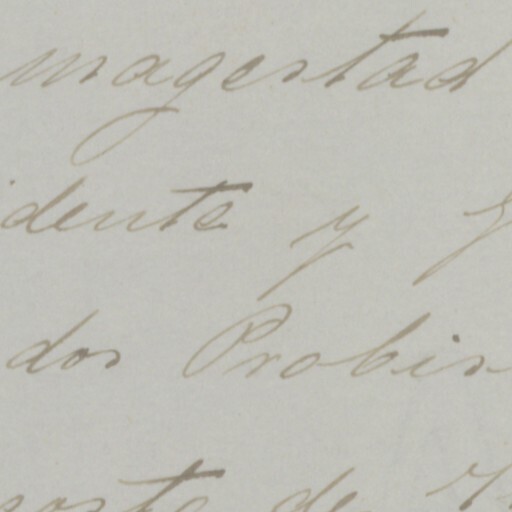 magestad
idente y
dos Probin
de